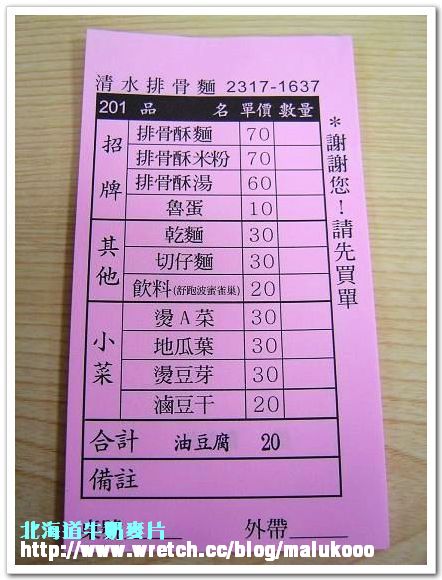 清水排骨麵 2317-1637
201 品 名 單價 數量
招牌
排骨酥麵 70
排骨酥米粉 70
排骨酥湯 60
魯蛋 10
其他
乾麵 30
切仔麵 30
飲料(舒跑波蜜雀巢) 20
小菜
燙A菜 30
地瓜葉 30
燙豆芽 30
滷豆干 20
合計 油豆腐 20
備註
外帶
*謝謝您!請先買單
北海道牛奶麥片
http://www.wretch.cc/blog/malukooo